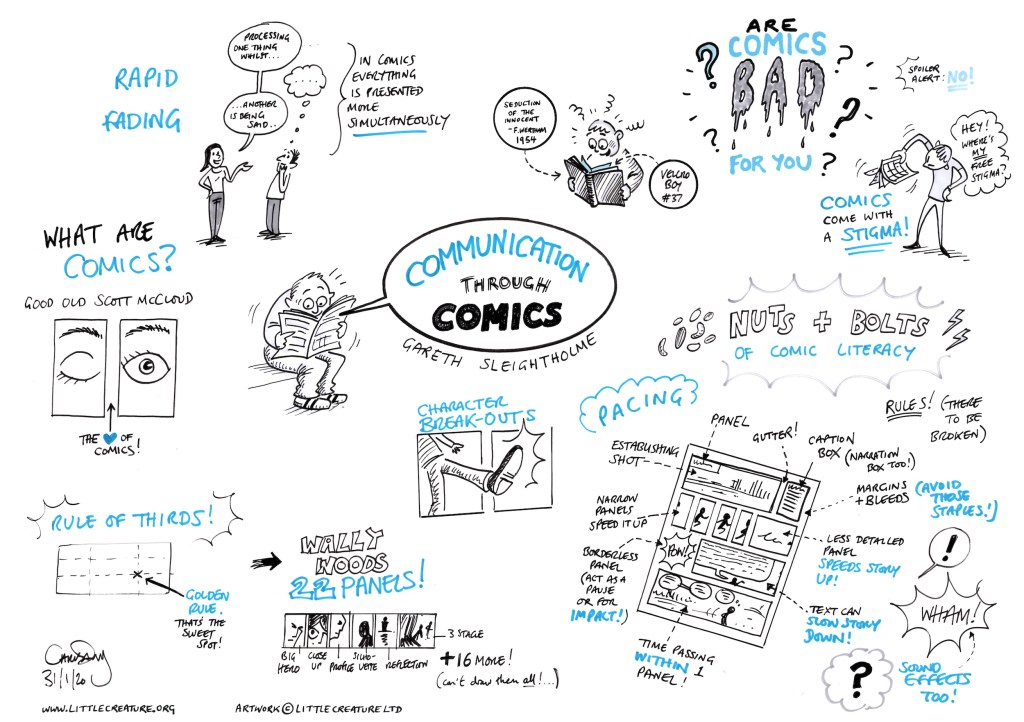 RAPID
FADING
PROCESSING
ONE THING
WHILST...
...ANOTHER
IS BEING
SAID...
IN COMICS
EVERYTHING
IS PRESENTED
MORE
SIMULTANEOUSLY
SEDUCTION
OF THE
INNOCENT
-F.WERTHAM
1954
VELCRO
BOY
#37
ARE
COMICS
BAD
FOR YOU?
SPOILER
ALERT: NO!
HEY!
WHERE'S
MY
FREE
STIGMA?
COMICS
COME WITH
A STIGMA!
WHAT ARE
COMICS?
GOOD OLD SCOTT McCLOUD
THE OF
COMICS!
COMMUNICATION
THROUGH
COMICS
GARETH SLEIGHTHOLME
NUTS + BOLTS
OF COMIC LITERACY
CHARACTER
BREAK-OUTS
PACING
RULES! (THERE
TO BE
BROKEN)
PANEL
GUTTER!
CAPTION
BOX (NARRATION
BOX TOO!)
ESTABLISHING
SHOT
MARGINS
+ BLEEDS
(AVOID
THOSE
STAPLES!)
NARROW
PANELS
SPEED IT UP
LESS DETAILED
PANEL
SPEEDS STORY
UP!
BORDERLESS
PANEL
(ACT AS A
PAUSE
OR FOR
IMPACT!)
POW!
TEXT CAN
SLOW STORY
DOWN!
TIME PASSING
WITHIN 1
PANEL!
!
WHAM!
SOUND
EFFECTS
TOO!
?
RULE OF THIRDS!
GOLDEN
RULE.
THAT'S THE
SWEET
SPOT!
WALLY
WOODS
22 PANELS!
BIG
HEAD
CLOSE
UP
PROFILE
SILHO-
UETTE
REFLECTION
3 STAGE
+16 MORE!
(can't draw them all!...)
31/1/20
WWW.LITTLECREATURE.ORG
ARTWORK © LITTLECREATURE LTD